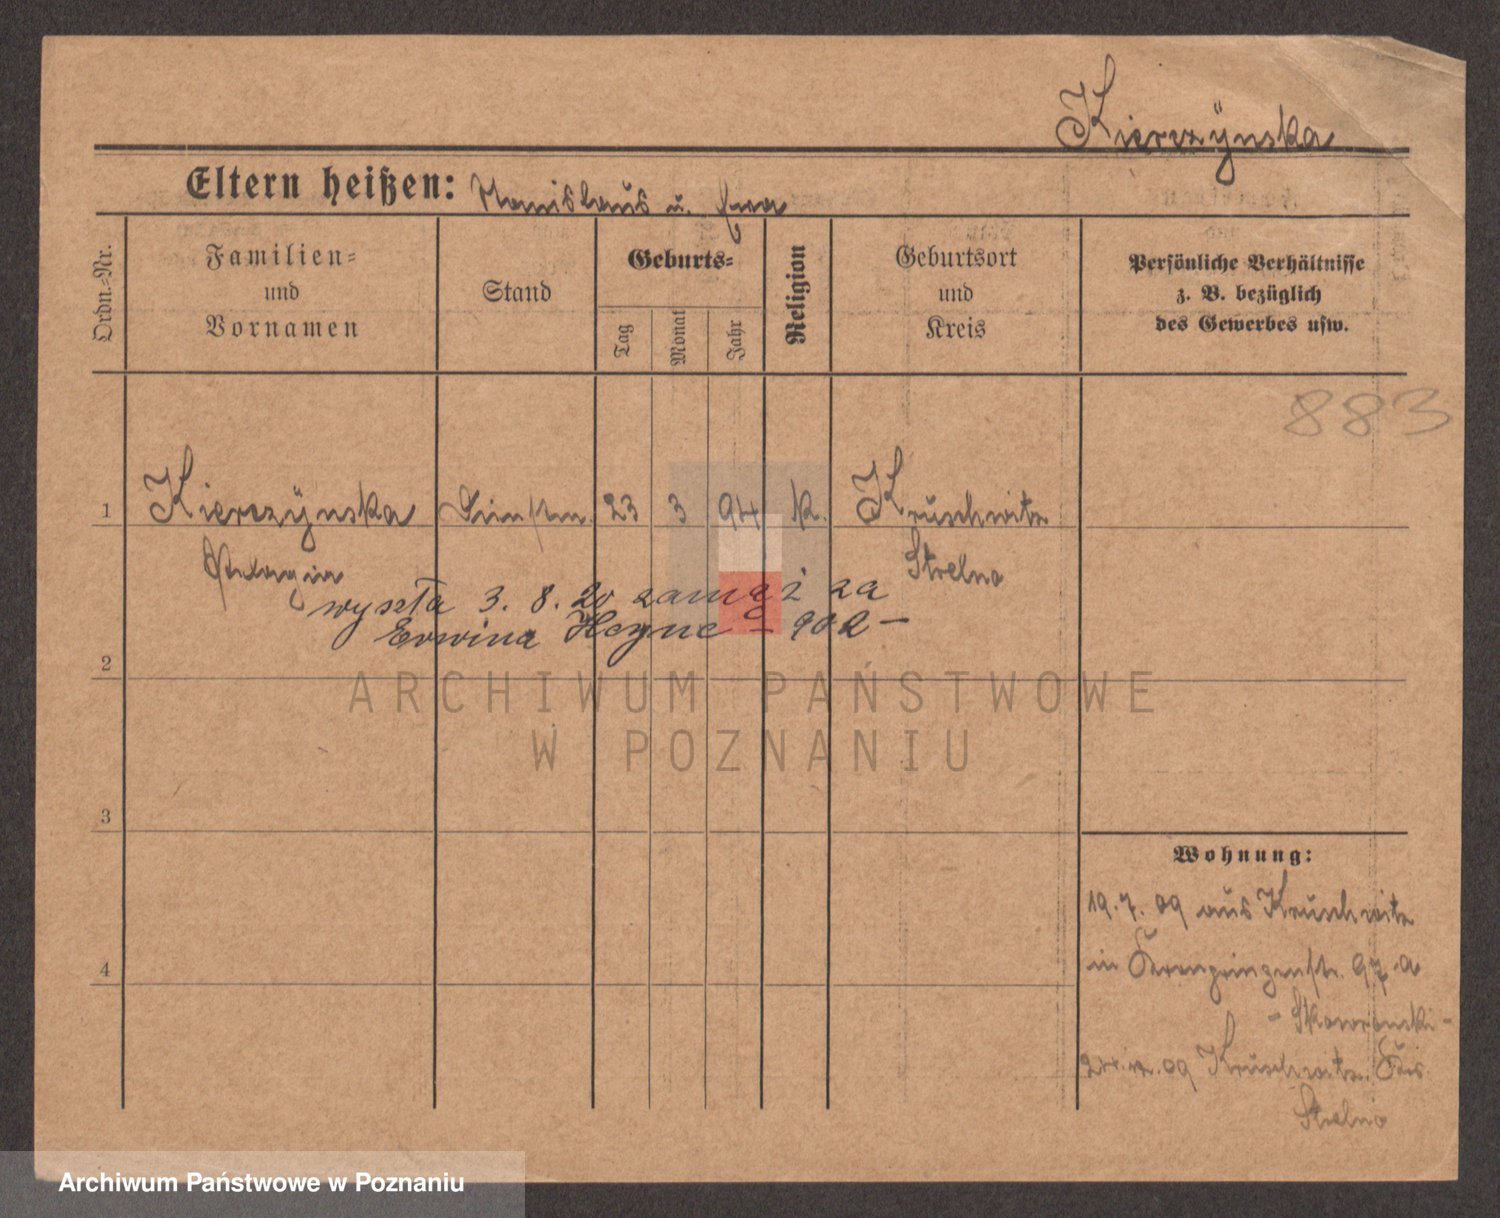 Kierczÿnska
Eltern heißen: Stanislaus u. Eva
Ordn.-Nr.
Familien-
und
Vornamen
Stand
Geburts-
Tag
Monat
Jahr
Religion
Geburtsort
und
Kreis
Persönliche Verhältnisse
z. B. bezüglich
des Gewerbes usw.
883
1 Kierczÿnska 23 3 94 k. Kruschwitz
Pelagia Strelno
wyszła 3. 8. 20 zamąż za
Erwina Heyne - 902 -
2
ARCHIWUM PAŃSTWOWE
W POZNANIU
3
Wohnung:
19. 7. 09 aus Kruschwitz
4
in Kronprinzenstr. 97.a
- Skowronski -
09 Kruschwitz Krs
Strelno
Archiwum Państwowe w Poznaniu